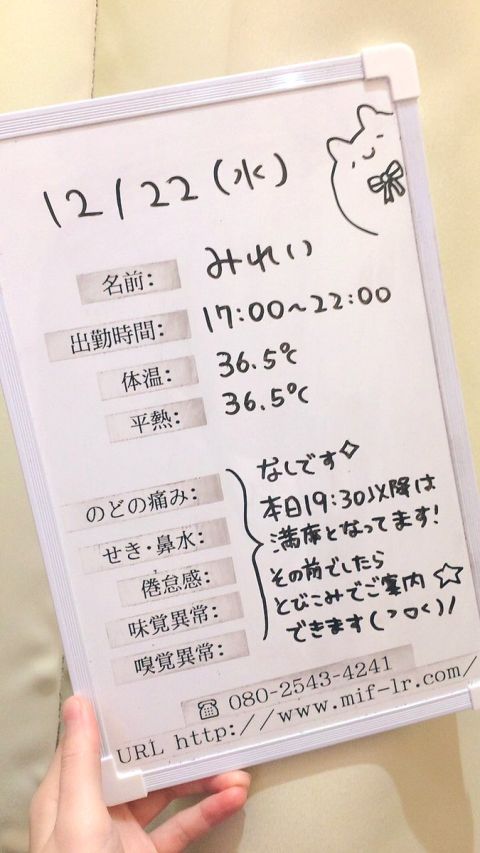 12/22(水)
名前: みれい
出勤時間: 17:00~22:00
体温: 36.5℃
平熱: 36.5℃
のどの痛み:
せき・鼻水:
倦怠感:
味覚異常:
嗅覚異常:
なしです✧
本日19:30以降は
満席となってます!
その前でしたら
とびこみでご案内☆
できます(>▽<)!
☎ 080-2543-4241
URL http://www.mif-lr.com/